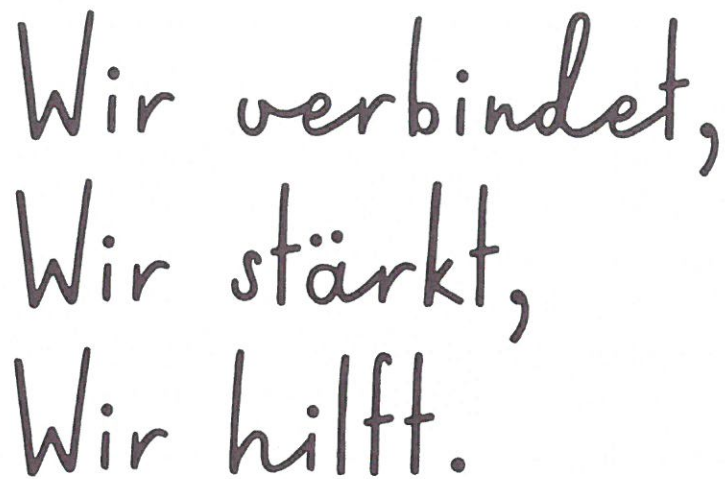 Wir verbindet,
Wir stärkt,
Wir hilft.